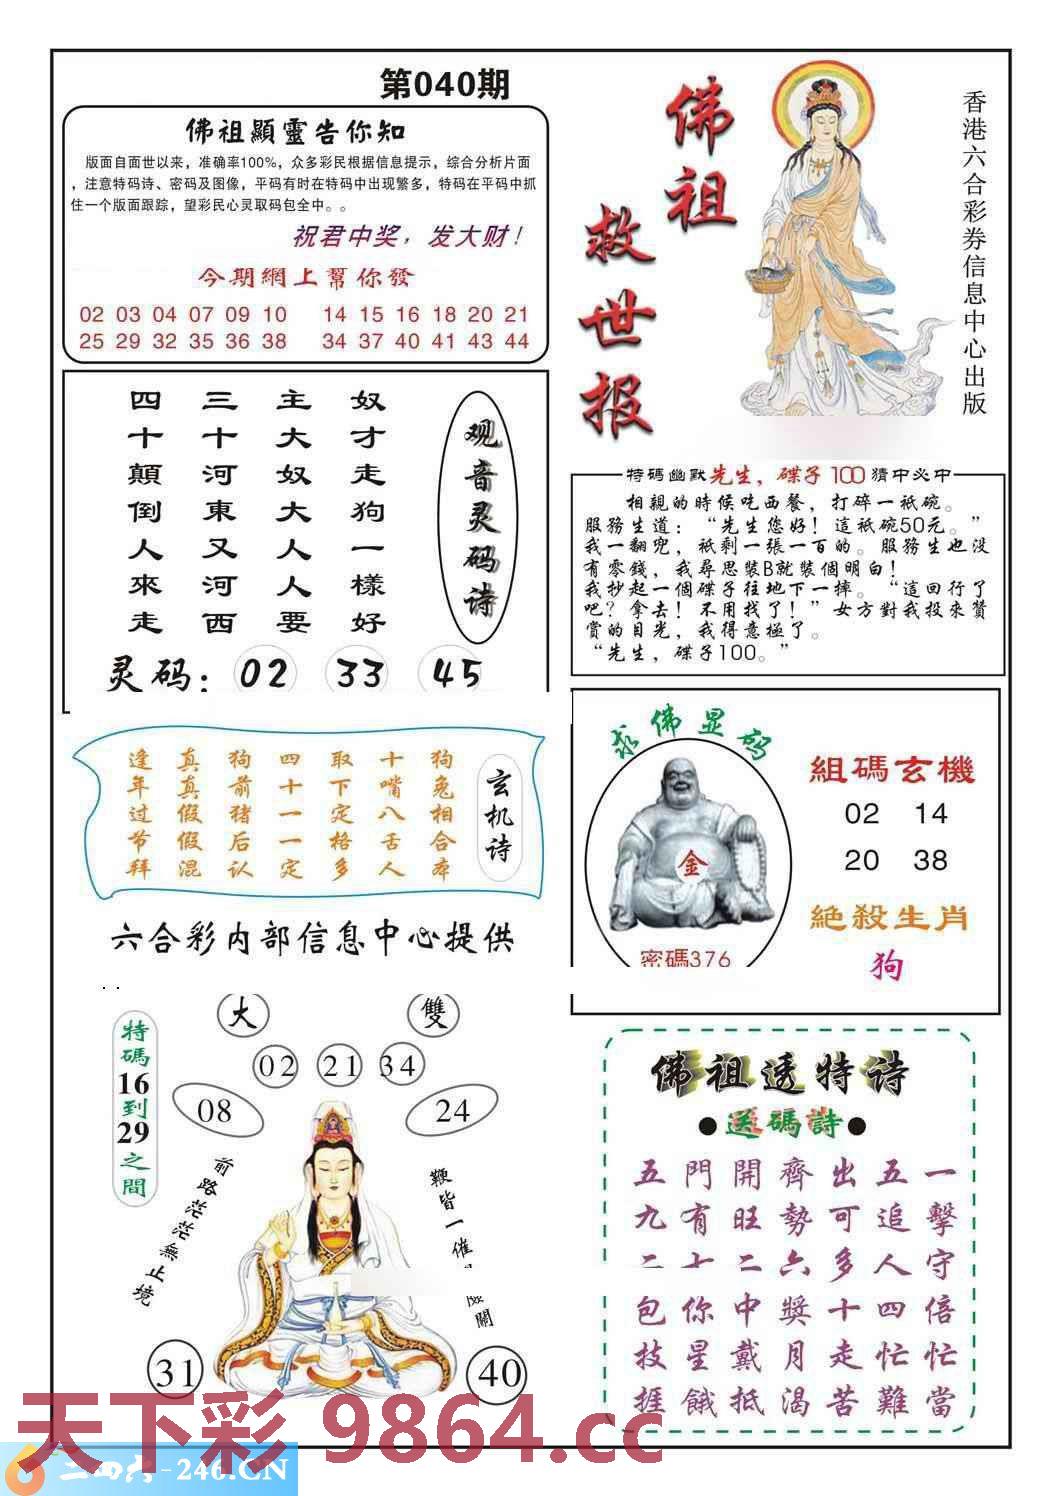 第040期
佛祖顯靈告你知
版面自面世以来，准确率100%，众多彩民根据信息提示，综合分析片面
，注意特码诗、密码及图像，平码有时在特码中出现繁多，特码在平码中抓
住一个版面跟踪，望彩民心灵取码包全中。。
祝君中奖，发大财！
今期網上幫你發
02 03 04 07 09 10 14 15 16 18 20 21
25 29 32 35 36 38 34 37 40 41 43 44
佛祖救世报
香港六合彩券信息中心出版
观音灵码诗
奴才走狗一樣好
主大奴大人人要
三十河東又河西
四十顛倒人來走
灵码：02 33 45
特碼幽默先生，碟子100猜中必中
相親的時候吃西餐，打碎一祇碗。
服務生道：“先生您好！這祇碗50元。”
我一翻兜，祇剩一張一百的。服務生也没
有零錢，我尋思裝B就裝個明白！
我抄起一個碟子往地下一摔。“這回行了
吧？拿去！不用找了！”女方對我投來贊
賞的目光，我得意極了。
“先生，碟子100。”
玄机诗
狗兔相合本
十嘴八舌人
取下定格多
四十一一定
狗前猪后认
真真假假混
逢年过节拜
六合彩内部信息中心提供
求佛显码
金
密碼376
組碼玄機
02 14
20 38
絕殺生肖
狗
特碼16到29之間
大 雙
02 21 34
08 24
前路茫茫無止境
鞭皆一催
關
31 40
佛祖透特诗
●送碼詩●
一擊守倍忙當
五追人四忙難
出可多十走苦
齊勢六獎月渴
開旺二中戴抵
門有七你星餓
五九二包技捱
天下彩 9864.cc
二四六-246.CN